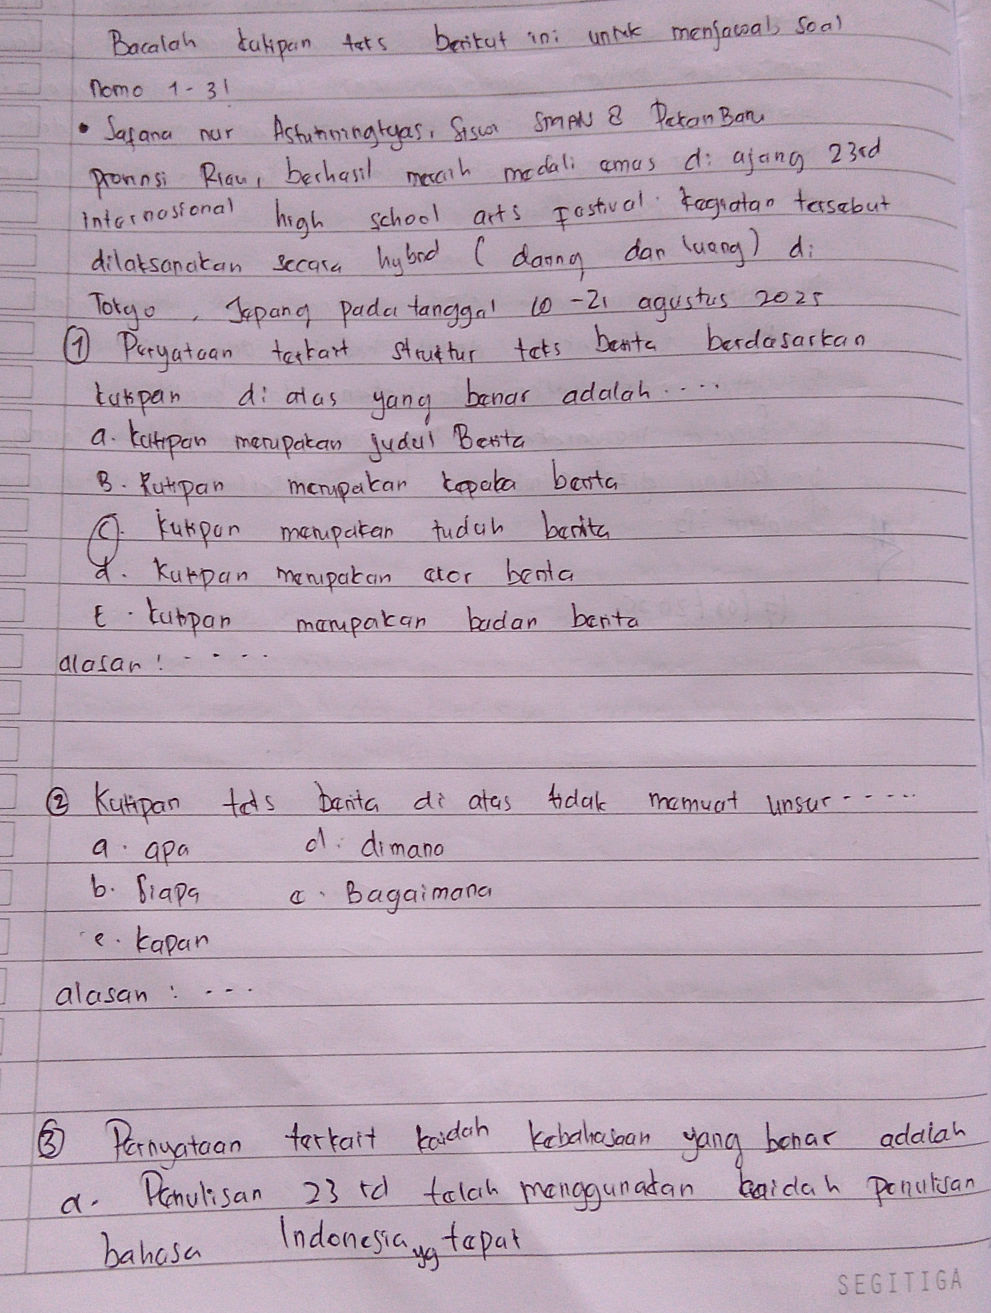 Bacalah kutipan teks berikut ini untuk menjawab soal
nomo 1-3!
• Safana nur Astutiningtyas, Siswa SMAN 8 PekanBaru
provinsi Riau, berhasil meraih medali emas di ajang 23rd
internasional high school arts Festival. kegiatan tersebut
dilaksanakan secara hybrid (daring dan luring) di
Tokyo, Jepang pada tanggal 10-21 agustus 2025
① Peryataan terkait struktur teks berita berdasarkan
kutipan di atas yang benar adalah ....
a. kutipan merupakan judul Berita
B. Kutipan merupakan kepala berita
C. kutipan merupakan tuduh berita
d. kutipan merupakan ekor berita
E. kutipan merupakan badan berita
alasan : . . . .
② Kutipan teks berita di atas tidak memuat unsur .....
a. apa d. dimana
b. Siapa c. Bagaimana
e. kapan
alasan : ....
③ Pernyataan terkait kaidah kebahasaan yang benar adalah
a. Penulisan 23 rd telah menggunakan kaidah penulisan
bahasa Indonesia yg tepat
SEGITIGA